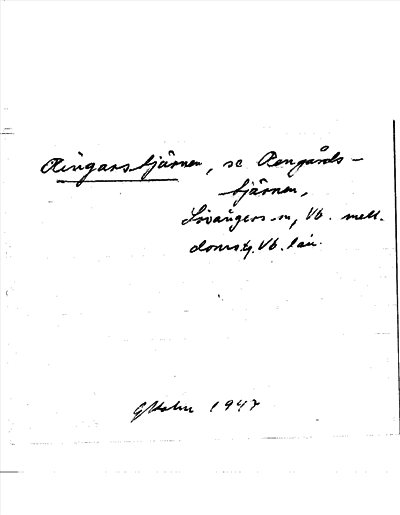 Ringarstjärnen, se Rengårds-
tjärnen,
Lövångers sn, Vb. mell.
doms., Vb. län.
GHolm 1947